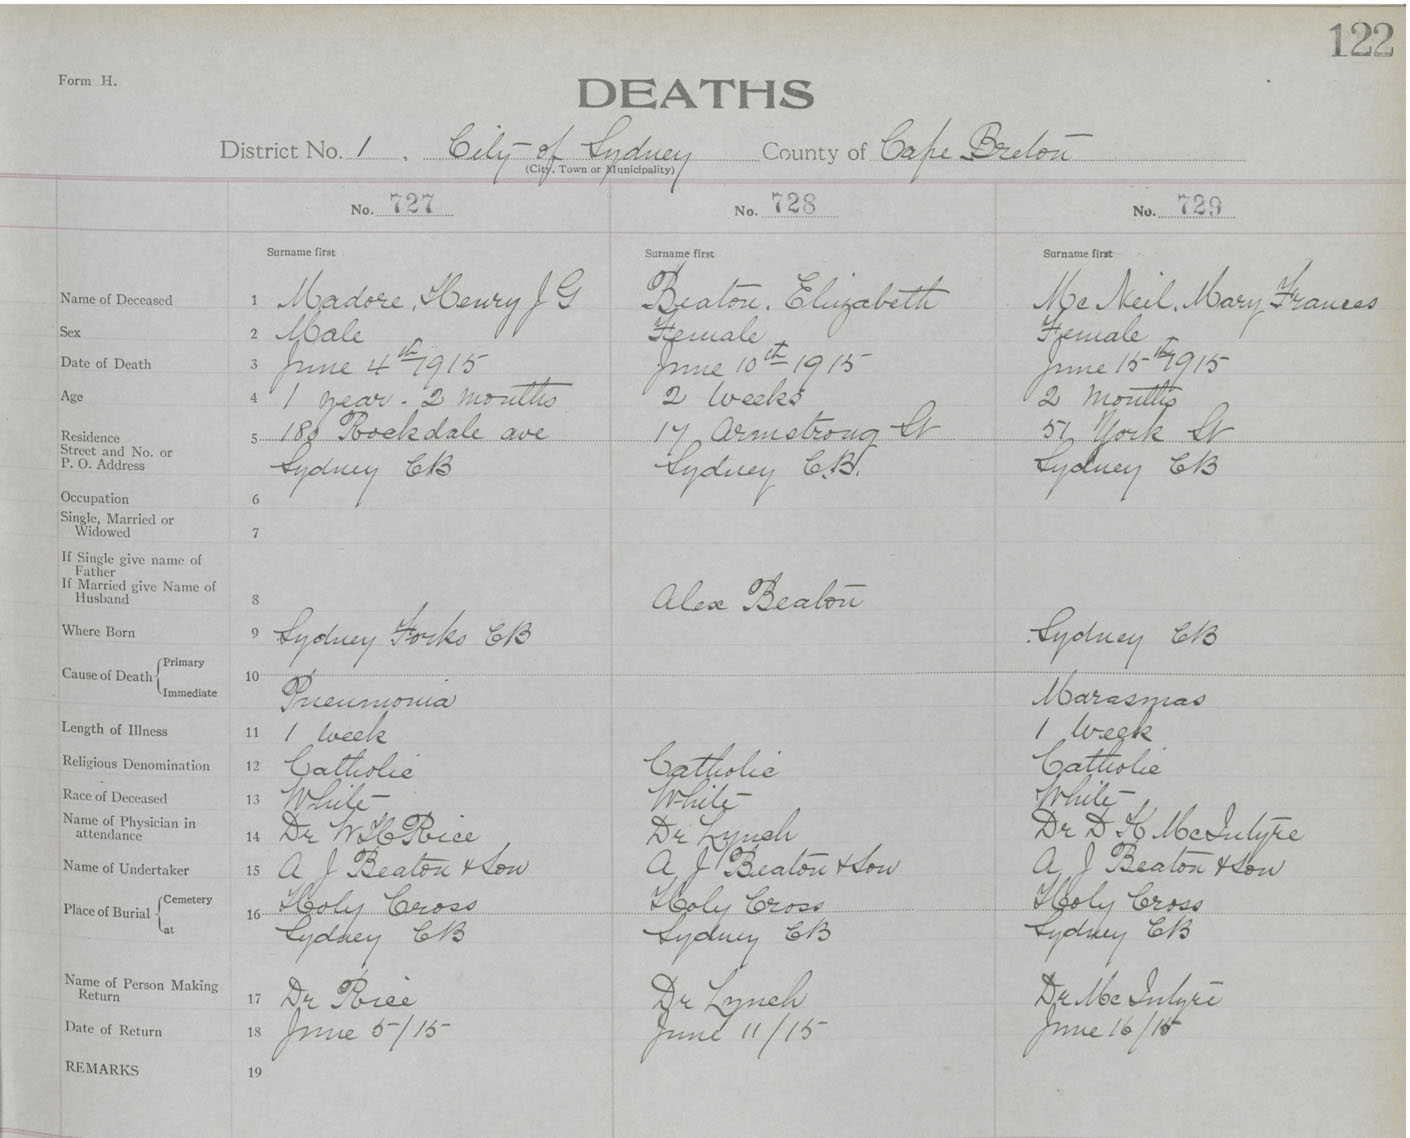 122
Form H.
DEATHS
District No. 1 . City of Sydney County of Cape Breton
(City, Town or Municipality)
No. 727 No. 728 No. 729
Surname first Surname first Surname first
Name of Deceased 1 Madore, Henry J G Beaton, Elizabeth McNeil, Mary Frances
Sex 2 Male Female Female
Date of Death 3 June 4th 1915 June 10th 1915 June 15th 1915
Age 4 1 year - 2 months 2 weeks 2 months
Residence
Street and No. or
P. O. Address
5 Rockdale ave 17 Armstrong St 51 York St
Sydney CB Sydney C.B. Sydney CB
Occupation 6
Single, Married or
Widowed 7
If Single give name of
Father
If Married give Name of
Husband 8 Alex Beaton
Where Born 9 Sydney Forks CB Sydney CB
Cause of Death Primary 10
Immediate Pneumonia Marasmas
Length of Illness 11 1 week 1 week
Religious Denomination 12 Catholic Catholic Catholic
Race of Deceased 13 White White White
Name of Physician in
attendance 14 Dr W H Rice Dr Lynch Dr D K McIntyre
Name of Undertaker 15 A J Beaton & Son A J Beaton & Son A J Beaton & Son
Place of Burial Cemetery 16 Holy Cross Holy Cross Holy Cross
at Sydney CB Sydney CB Sydney CB
Name of Person Making
Return 17 Dr Rice Dr Lynch Dr McIntyre
Date of Return 18 June 5/15 June 11/15 June 16/15
REMARKS 19